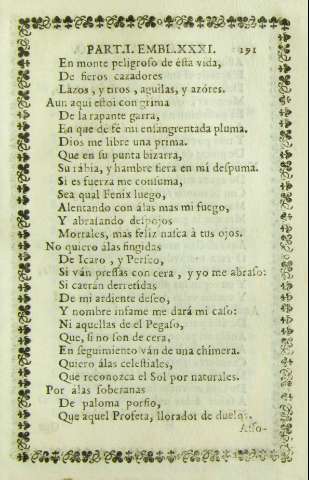 PART.I. EMBL.XXXI. 191
En monte peligroſo de éſta vida,
De fieros cazadores
Lazos, y tiros, aguilas, y azóres.
Aun aqui eſtoi con grima
De la rapante garra,
En que de fé mi enſangrentada pluma.
Dios me libre una prima.
Que en ſu punta bizarra,
Su rábia, y hambre fiera en mí deſpuma.
Si es fuerza me conſuma,
Sea qual Fenix luego,
Alentando con álas mas mi fuego,
Y abraſando deſpojos
Mortales, más feliz naſca à tus ojos.
No quiero álas fingidas
De Icaro, y Perſeo,
Si ván preſſas con cera, y yo me abraſo:
Si caerán derretidas
De mi ardiente deſeo,
Y nombre infame me dará mi caſo:
Ni aquellas de el Pegaſo,
Que, ſi no ſon de cera,
En ſeguimiento ván de una chimera.
Quiero álas celeſtiales,
Que reconozca el Sol por naturales.
Por álas ſoberanas
De paloma porfio,
Que aquel Profeta, llorador de duelos,
Aſſo-